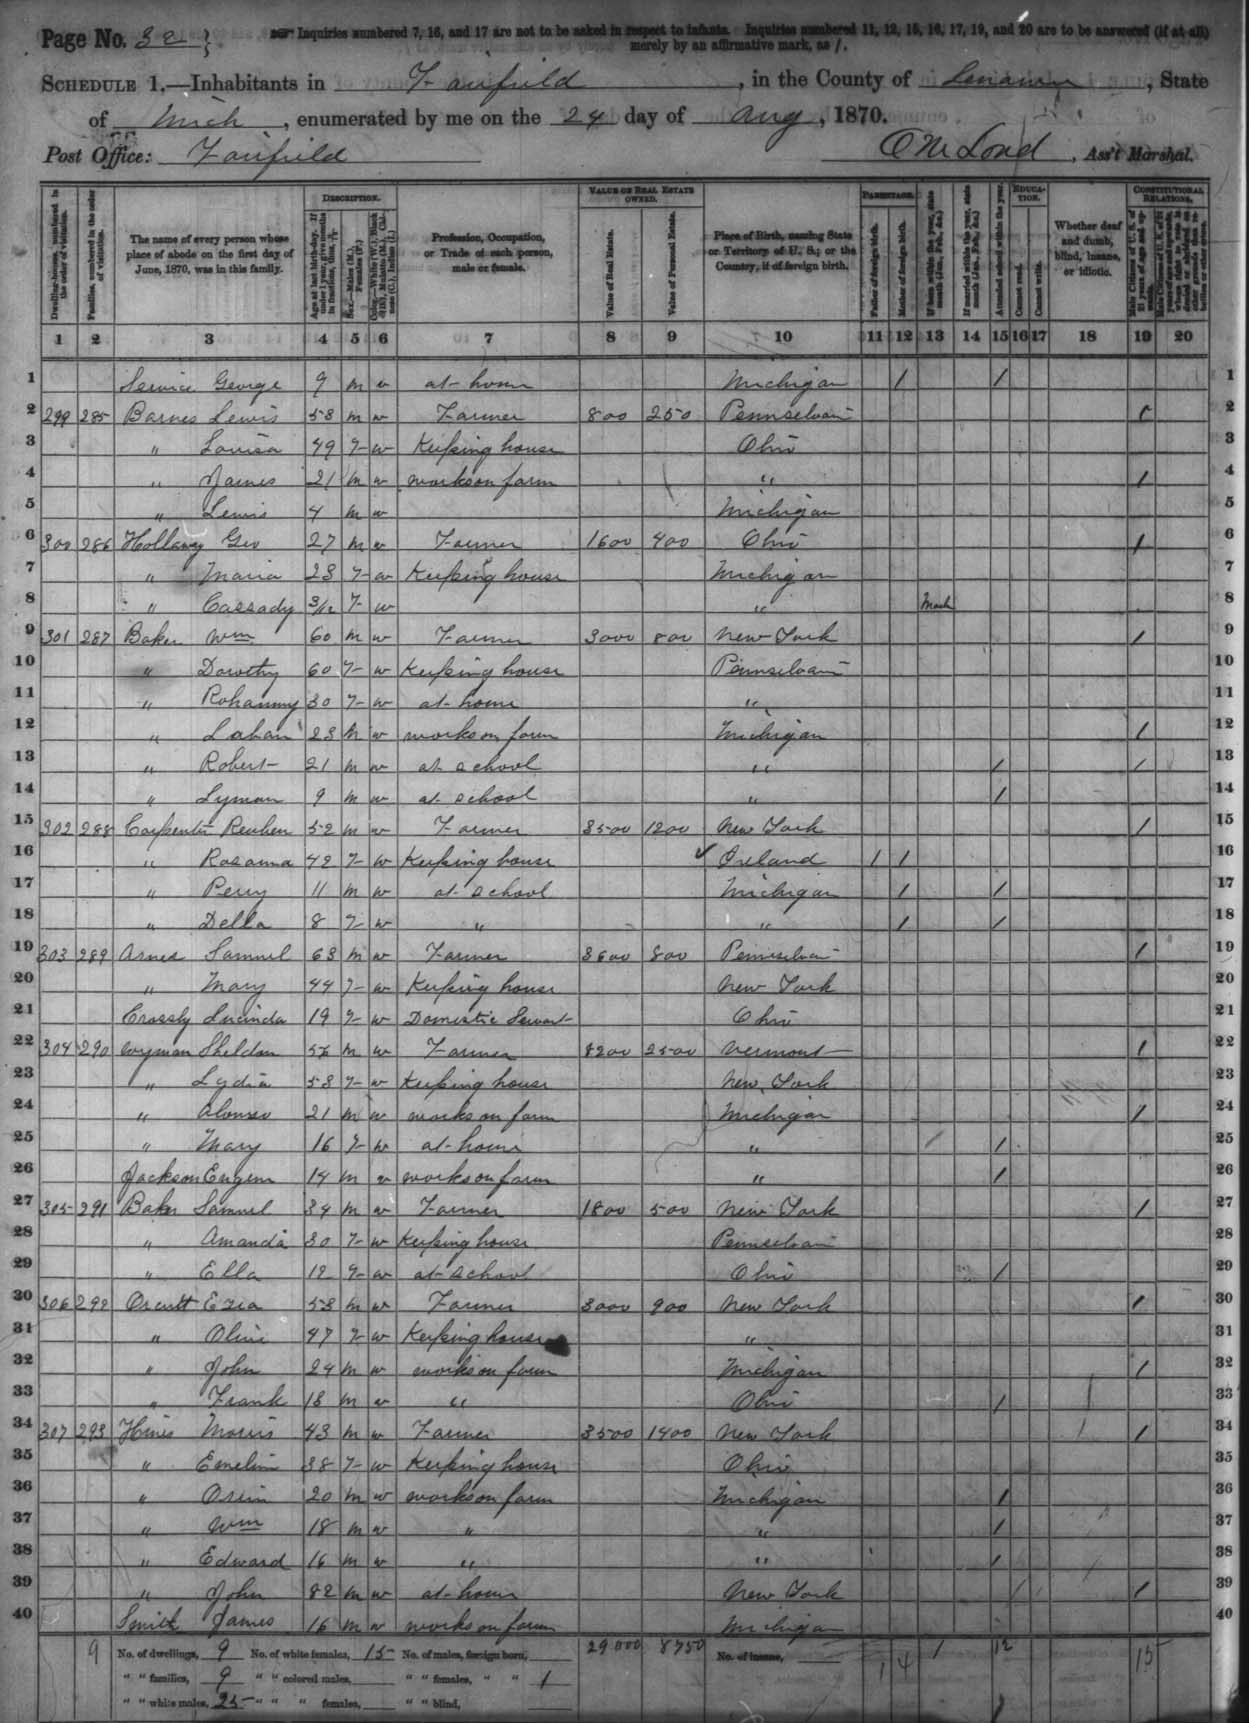 Page No. 32 Inquiries numbered 7, 16, and 17 are not to be asked in respect to infants. Inquiries numbered 11, 12, 15, 16, 17, 19, and 20 are to be answered (if at all)
merely by an affirmative mark, as /.
SCHEDULE 1.—Inhabitants in Fairfield, in the County of Lenawee, State
of Mich, enumerated by me on the 24 day of Aug, 1870.
Post Office: Fairfield , Ass't Marshal.
DESCRIPTION. VALUE OF REAL ESTATE OWNED. PARENTAGE. EDUCATION. CONSTITUTIONAL RELATIONS.
Dwelling-houses, numbered in the order of visitation. Families, numbered in the order of visitation. The name of every person whose place of abode on the first day of June, 1870, was in this family. Profession, Occupation, or Trade of each person, male or female. Value of Real Estate. Value of Personal Estate. Place of Birth, naming State or Territory of U. S.; or the Country, if of foreign birth. Father of foreign birth. Mother of foreign birth. Attended school within the year. Cannot read. Cannot write. Whether deaf and dumb, blind, insane, or idiotic.
1 2 3 4 5 6 7 8 9 10 11 12 13 14 15 16 17 18 19 20
1 Service George 9 m w at home Michigan / / 1
2 299 285 Barnes Lewis 53 m w Farmer 800 250 Pennselvani / 2
3 " Louisa 49 F w Keeping house Ohio 3
4 " James 21 m w works on farm " / 4
5 " Lewis 4 m w Michigan 5
6 300 286 Hollaway Geo 27 m w Farmer 1600 400 Ohio / 6
7 " Maria 23 F w Keeping house Michigan 7
8 " Cassady 3/12 F w " March 8
9 301 287 Baker Wm 60 m w Farmer 3000 800 New York / 9
10 " Dorothy 60 F w Keeping house Pennselvani 10
11 " Rohanny 30 F w at home " 11
12 " Laban 23 m w works on farm Michigan / 12
13 " Robert 21 m w at school " / / 13
14 " Lyman 9 m w at school " / 14
15 302 288 Carpenter Reuben 52 m w Farmer 8500 1200 New York / 15
16 " Rosanna 42 F w Keeping house Ireland / / 16
17 " Perry 11 m w at school Michigan / / 17
18 " Della 8 F w " " / / 18
19 303 289 Arnes Samuel 63 m w Farmer 3600 800 Pennselvani / 19
20 " Mary 44 F w Keeping house New York 20
21 Crossly Lucinda 19 F w Domestic Servant Ohio 21
22 304 290 Wyman Sheldon 56 m w Farmer 8200 2500 Vermont / 22
23 " Lydia 53 F w Keeping house New York 23
24 " Alonzo 21 m w works on farm Michigan / 24
25 " Mary 16 F w at home " / 25
26 Jackson Eugene 14 m w works on farm " / 26
27 305 291 Baker Samuel 34 m w Farmer 1800 500 New York / 27
28 " Amanda 30 F w Keeping house Pennselvani 28
29 " Ella 12 F w at school Ohio / 29
30 306 292 Orcutt Ezra 53 m w Farmer 3000 900 New York / 30
31 " Olive 47 F w Keeping house " 31
32 " John 24 m w works on farm Michigan / 32
33 " Frank 18 m w " Ohio / 33
34 307 293 Hines Morris 43 m w Farmer 3500 1400 New York / 34
35 " Emeline 38 F w Keeping house Ohio 35
36 " Orrin 20 m w works on farm Michigan / 36
37 " Wm 18 m w " " / 37
38 " Edward 16 m w " " / 38
39 " John 82 m w at home New York / 39
40 Smith James 16 m w works on farm Michigan 40
9 No. of dwellings, 9 No. of white females, 15 No. of males, foreign born, 29000 8750 No. of insane, 1 4 1 12 15
" " families, 9 " " colored males, " " females, " " 1
" " white males, 25 " " " females, " " blind,